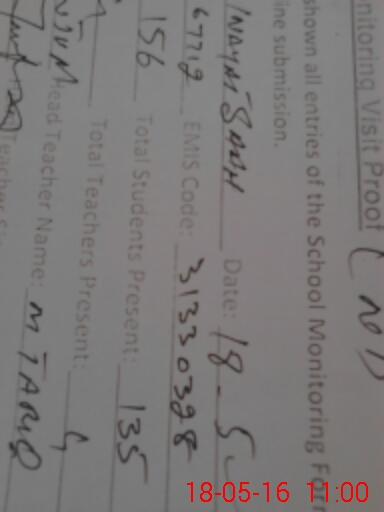 nitoring Visit Proof (
shown all entries of the School Monitoring For
ine submission.
Date: 18 - 5
67712 EMIS Code: 31330328
156 Total Students Present: 135
Total Teachers Present: 4
Head Teacher Name: M TARIQ
18-05-16 11:00